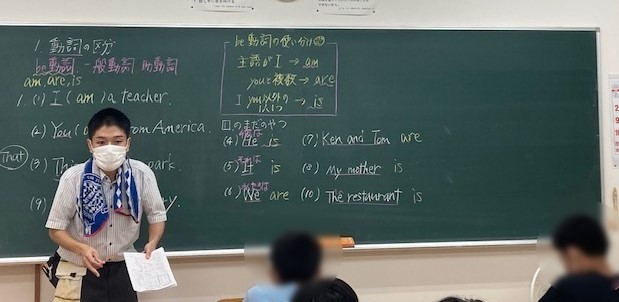 1. 動詞の区分
be動詞、一般動詞 助動詞
am are, is
1. (1) I (am) a teacher.
(2) You (a from America.
That
(3) Thi park.
(9) ty.
be動詞の使い分け
主語が I → am
youと複数 → are
I you以外の1人1つ → is
のまだのやつ
彼は
(4) He is
それは
(5) It is
私たちは
(6) We are
(7) Ken and Tom are
(8) My mother is
(10) The restaurant is